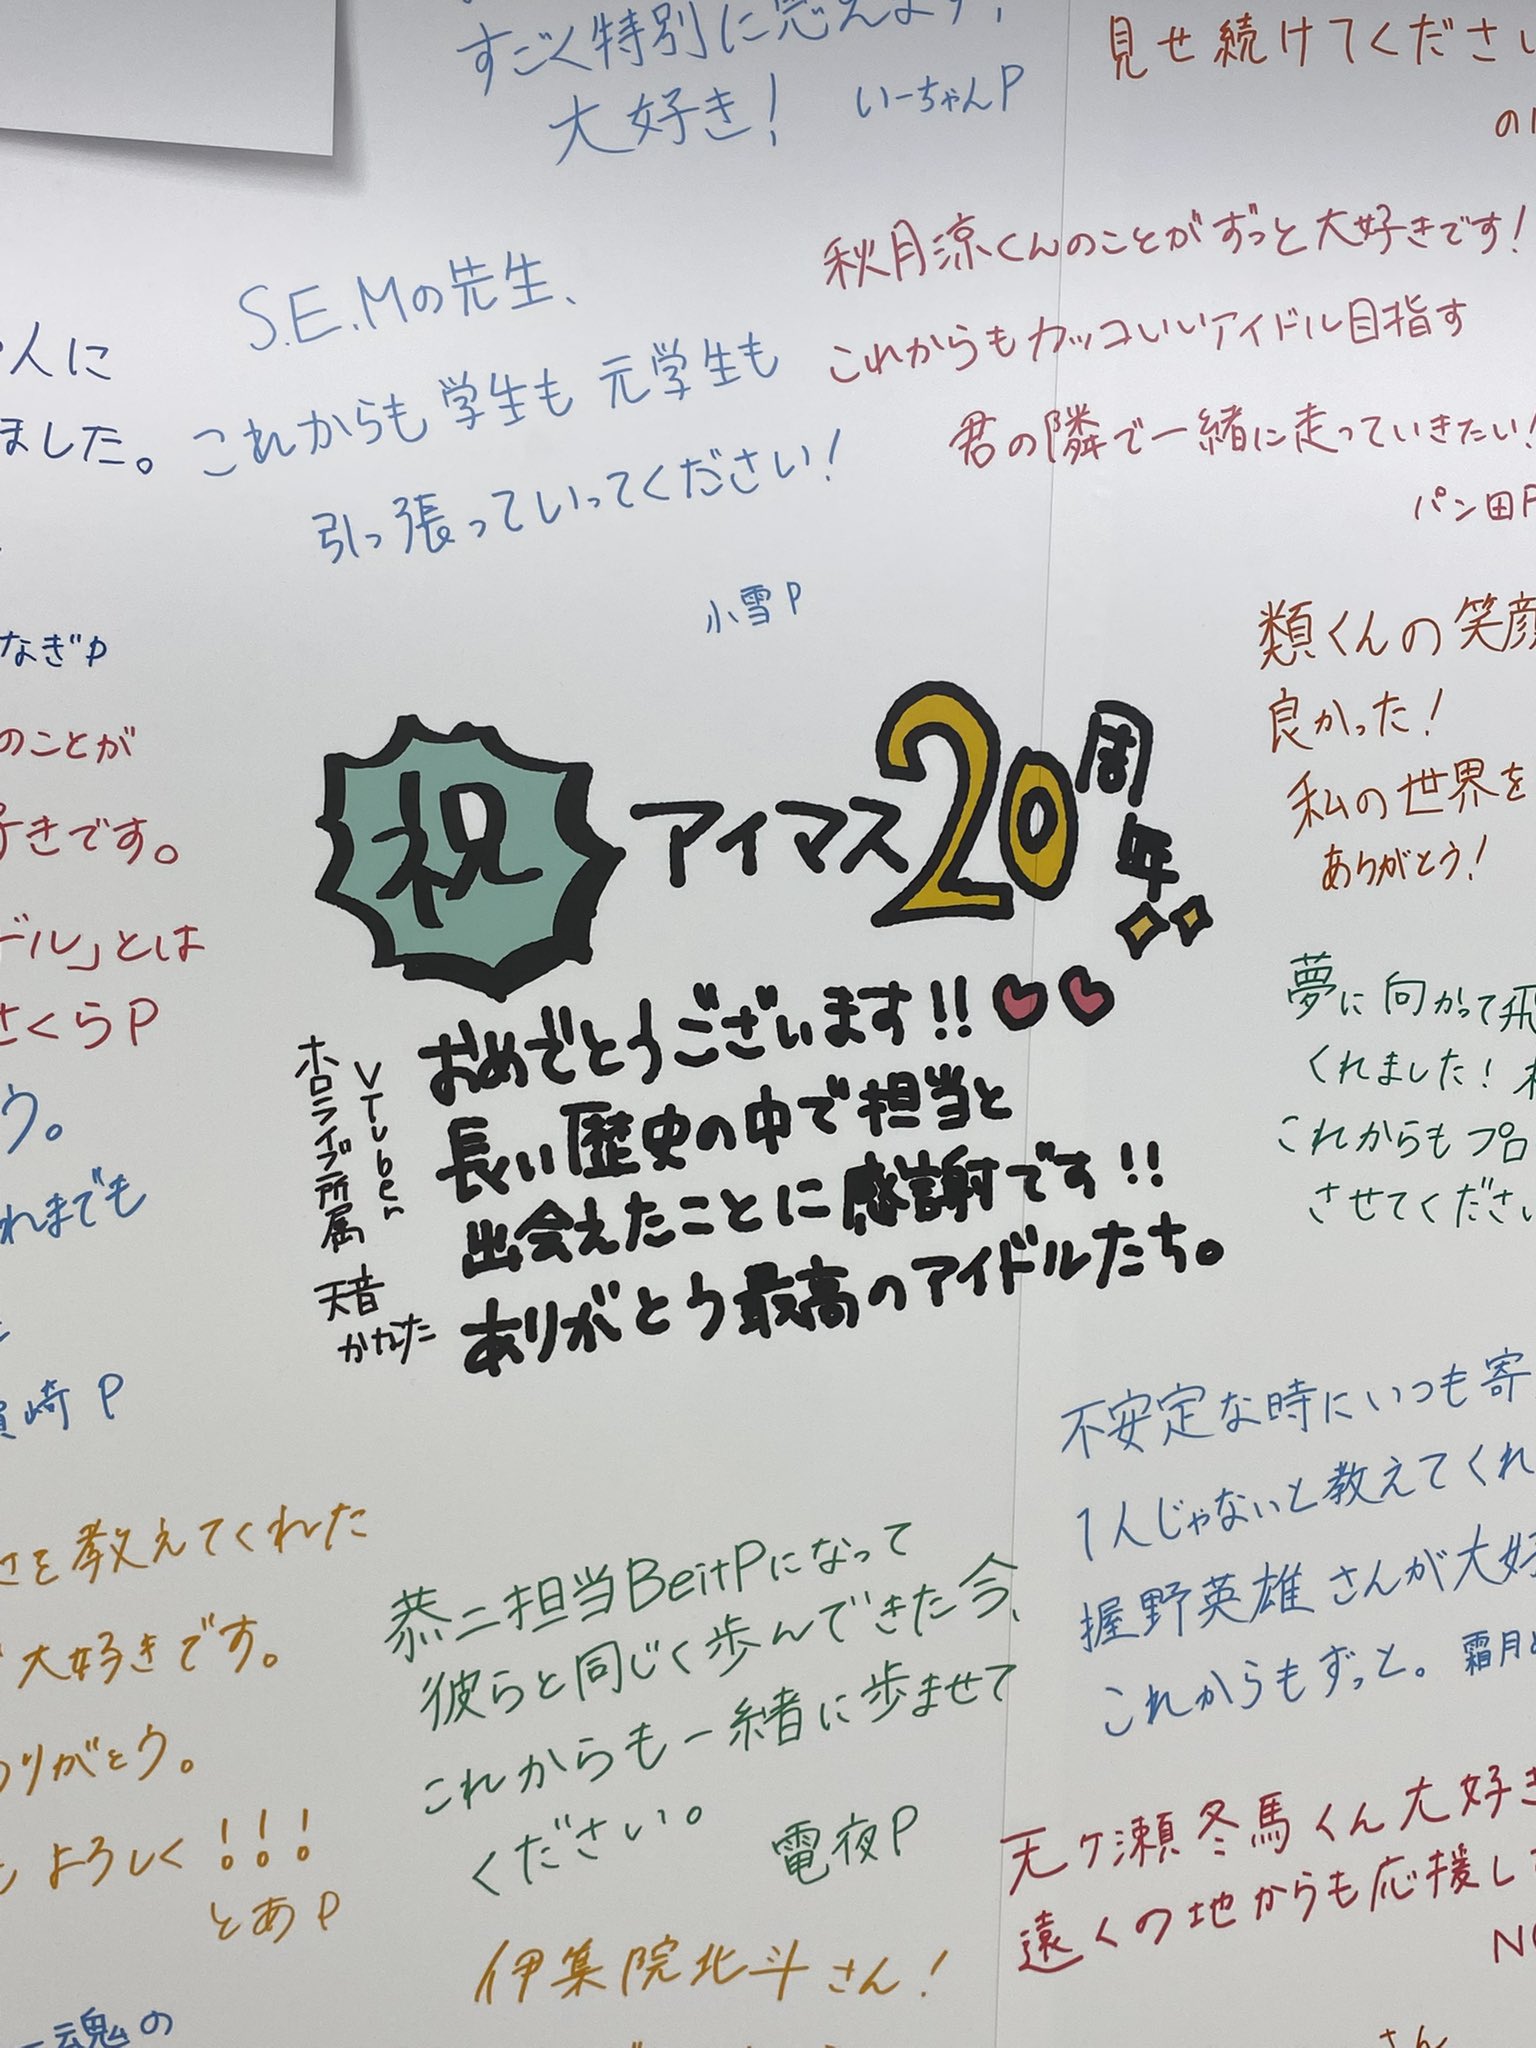 すごく特別に思えます!
大好き!
いーちゃんP
見せ続けてくださ
秋月涼くんのことがずっと大好きです!
これからもカッコいいアイドル目指す
君の隣で一緒に走っていきたい!
パン田P
S.E.Mの先生、
これからも学生も元学生も
引っ張っていってください!
小雪P
人に
ました。
なぎP
のことが
きです。
ドル」とは
さくらP
う。
れまでも
崎P
類くんの笑顔
良かった!
私の世界を
ありがとう!
祝
アイマス20周年
おめでとうございます!!
長い歴史の中で担当と
出会えたことに感謝です!!
ありがとう最高のアイドルたち。
VTuber
ホロライブ所属
天音
かなた
夢に向かって飛
くれました!
これからもプロ
させてくださ
不安定な時にいつも寄
1人じゃないと教えてくれ
握野英雄さんが大好
これからもずっと。
霜月
を教えてくれた
大好きです。
りがとう。
よろしく!!!
とあP
恭二担当BeitPになって
彼らと同じく歩んできた今、
これからも一緒に歩ませて
ください。
電夜P
天ヶ瀬冬馬くん大好き
遠くの地からも応援し
伊集院北斗さん!
魂の
さん